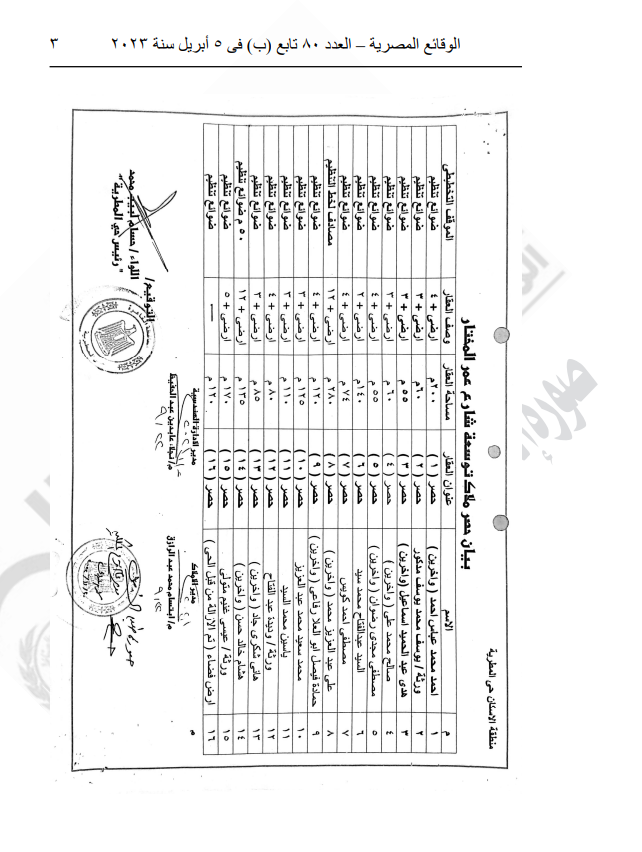 الوقائع المصرية – العدد ٨٠ تابع (ب) فى ٥ أبريل سنة ٢٠٢٣ ٣
منطقة الاسكان حى المطرية
بيان حصر ملاك توسعة شارع عمر المختار
م الاسم عنوان العقار مساحة العقار وصف العقار الموقف التخطيطى
١ احمد محمد عباس احمد ( واخرين ) حصر ( ١ ) ٢٠٠م ارضى + ٤ ضوائع تنظيم
٢ ورثة / يوسف محمد يوسف مدكور حصر ( ٢ ) ٦٠م ارضى + ٣ ضوائع تنظيم
٣ هدى عبد الحميد اسماعيل (واخرين ) حصر ( ٣ ) ٥٥ م ارضى + ٣ ضوائع تنظيم
٤ صالح محمد على ( واخرين ) حصر ( ٤ ) ٦٠ م ارضى + ٣ ضوائع تنظيم
٥ مصطفى مجدى رضوان ( واخرين ) حصر ( ٥ ) ٥٥ م ارضى + ٤ ضوائع تنظيم
٦ السيد عبدالفتاح محمد سيد حصر ( ٦ ) ١٤٠م ارضى + ٢ ضوائع تنظيم
٧ مصطفى احمد كويس حصر ( ٧ ) ٧٤ م ارضى + ٤ ضوائع تنظيم
٨ على عبد العزيز محمد ( واخرين ) حصر ( ٨ ) ٢٨٠ م ارضى + ١٢ مصادف لخط التنظيم
٩ حمادة فيصل ابو العلا رفاعى ( واخرين ) حصر ( ٩ ) ١٢٠ م ارضى + ٤ ضوائع تنظيم
١٠ محمد سعيد محمد عبد العزيز حصر ( ١٠ ) ١٢٥ م ارضى + ٣ ضوائع تنظيم
١١ ياسين محمد السيد حصر ( ١١ ) ١١٠ م ارضى + ٣ ضوائع تنظيم
١٢ ورثة / وديدة عبد الفتاح حصر ( ١٢ ) ٨٠ م ارضى + ٤ ضوائع تنظيم
١٣ هانى شكرى جاد ( واخرين ) حصر ( ١٣ ) ٨٥ م ارضى + ٣ ضوائع تنظيم
١٤ هشام خالد حسن ( واخرين ) حصر ( ١٤ ) ١٣٥ م ارضى + ١٢ ٥٠ م ضوائع تنظيم
١٥ ورثة / عيسى غنيم متولى حصر ( ١٥ ) ١٧٠ م ارضى + ٥ ضوائع تنظيم
١٦ ارض فضاء ( تم الازالة من قبل الحى ) حصر ( ١٦ ) ١٢٠ م ضوائع تنظيم
م
مدير الاملاك
م / ابتسام محمد عبد الرازق
مدير الادارة الهندسية
م / نجلاء عابدين عبد الحفيظ
التوقيع /
اللواء / حسام لبيب محمد
" رئيس حي المطرية "